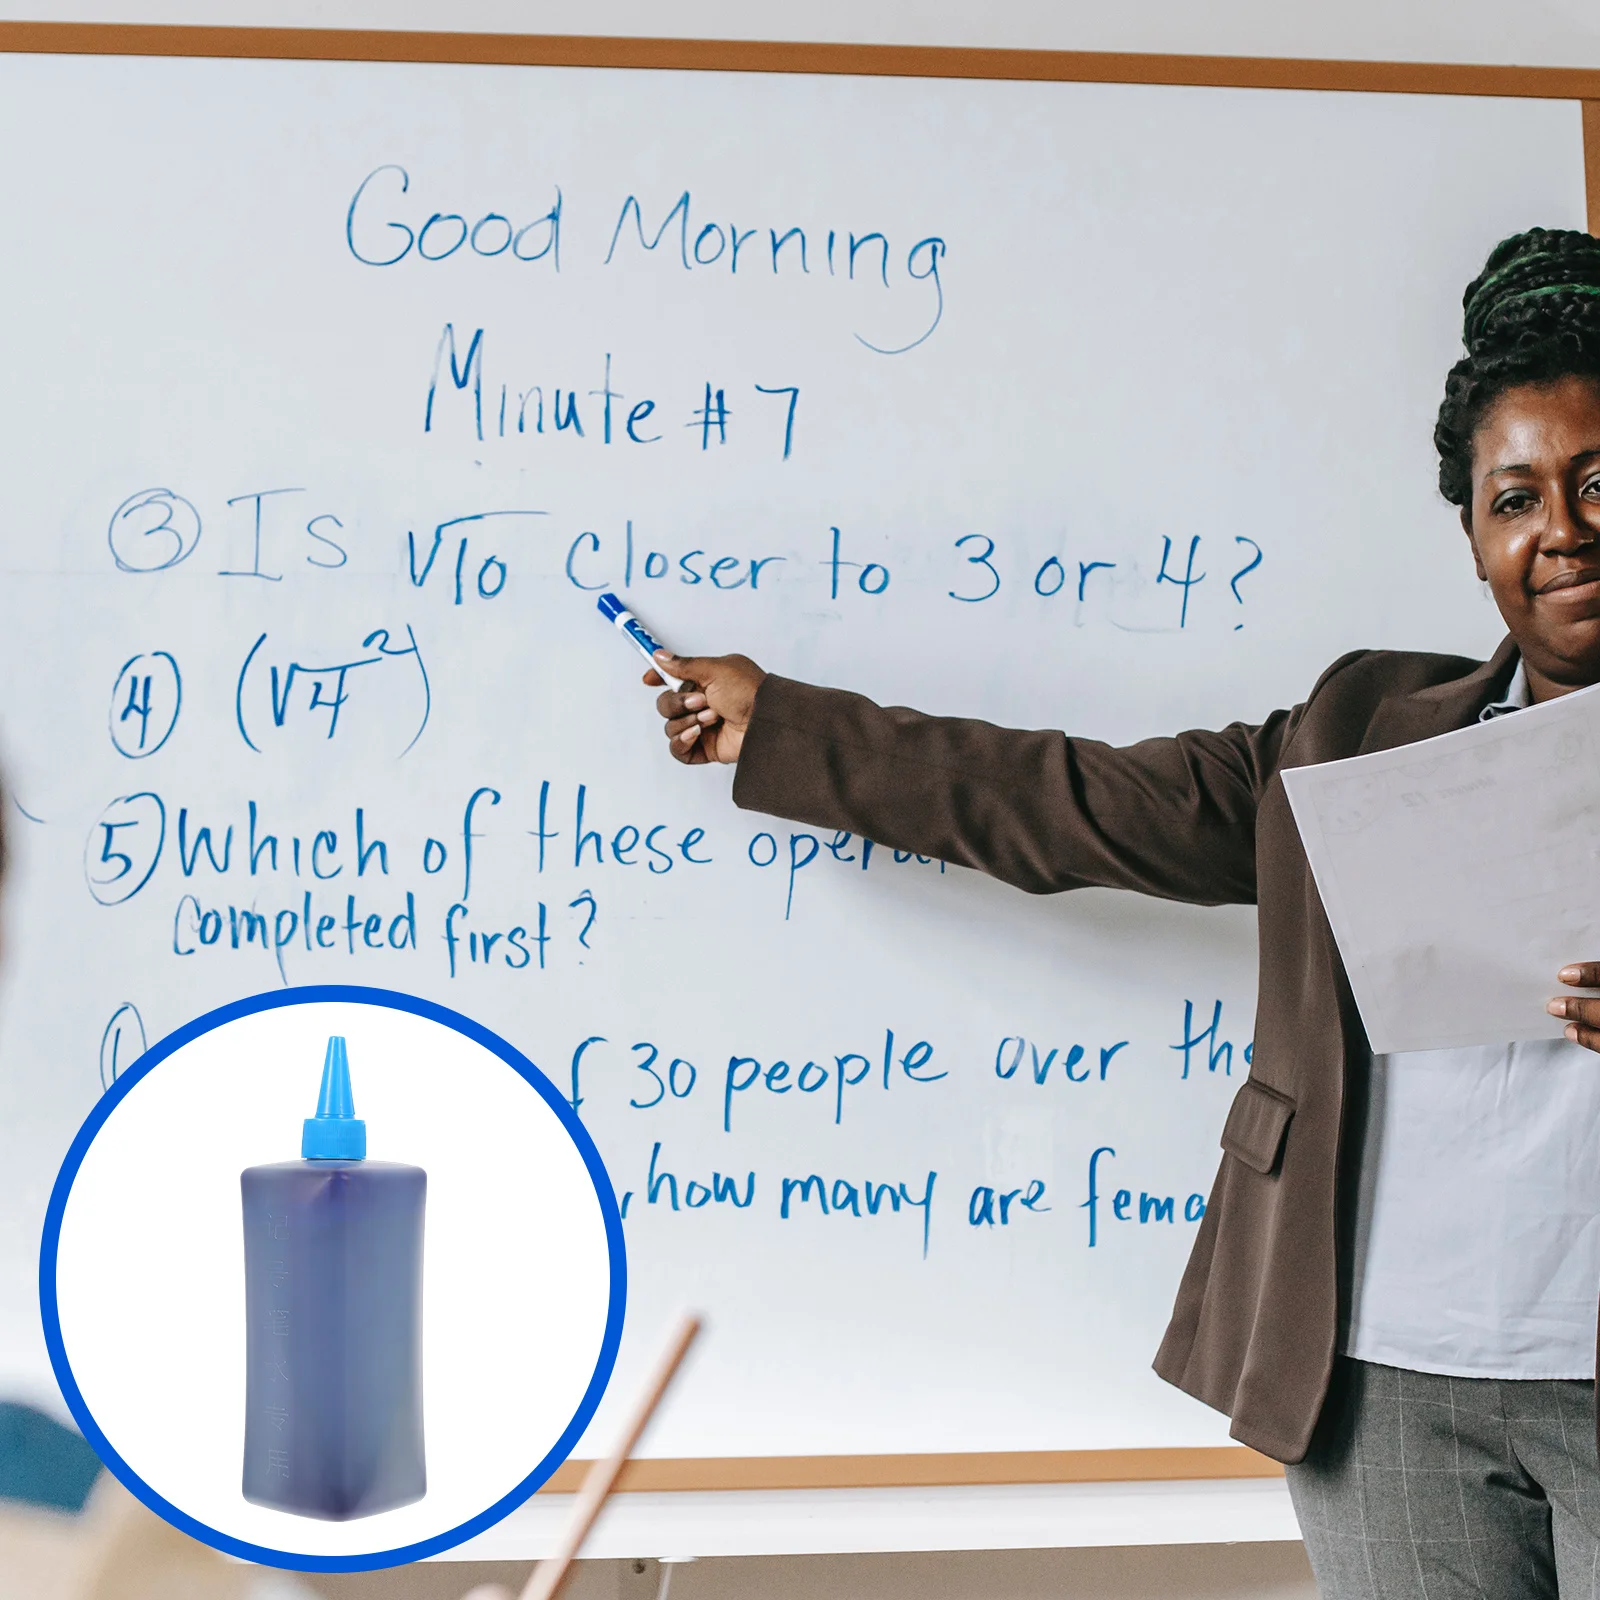 Good Morning
Minute #7
③ Is √10 closer to 3 or 4?
④ (√4²)
⑤ Which of these
completed first?
30 people over the
, how many are